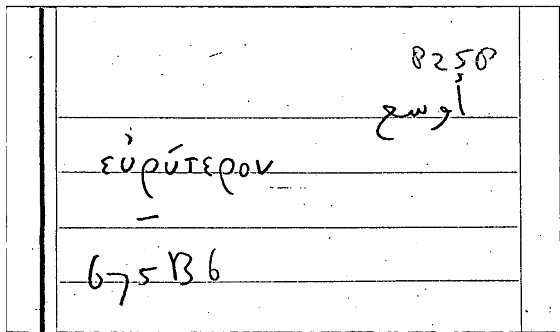 8258
أوسع
εὐρύτερον
–
675 B 6